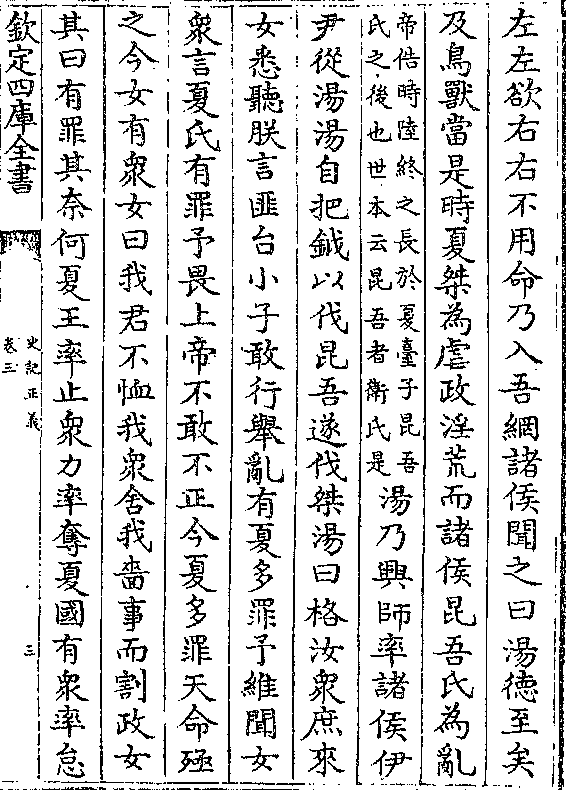 左左欲右右不用命乃入吾網諸侯聞之曰湯德至矣
及鳥獸當是時夏桀為虐政淫荒而諸侯昆吾氏為亂
帝俈時陸終之長於夏臺子昆吾
氏之後也世本云昆吾者衛氏是
湯乃興師率諸侯伊
尹從湯湯自把鉞以伐昆吾遂伐桀湯曰格汝衆庶來
女悉聽朕言匪台小子敢行舉亂有夏多罪予維聞女
衆言夏氏有罪予畏上帝不敢不正今夏多罪天命殛
之今女有衆女曰我君不恤我衆舍我嗇事而割政女
其曰有罪其奈何夏王率止衆力率奪夏國有衆率怠
欽定四庫全書
史記正義
卷三
三